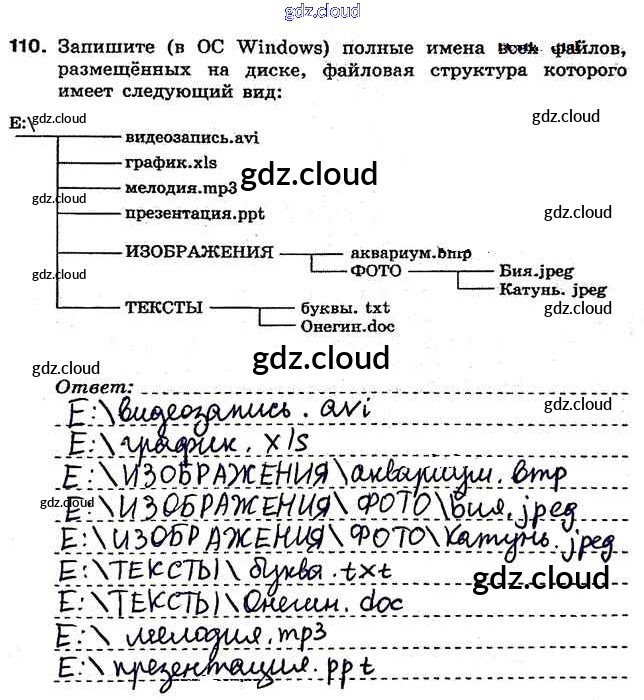 gdz.cloud
110. Запишите (в ОС Windows) полные имена всех файлов,
размещённых на диске, файловая структура которого
имеет следующий вид:
E:\
gdz.cloud
gdz.cloud
видеозапись.avi
график.xls
gdz.cloud
мелодия.mp3
gdz.cloud
презентация.ppt
gdz.cloud
ИЗОБРАЖЕНИЯ аквариум.bmp
gdz.cloud
ФОТО Бия.jpeg
Катунь. jpeg
ТЕКСТЫ буквы. txt
Онегин.doc
gdz.cloud
gdz.cloud
gdz.cloud
Ответ:
E:\видеозапись.avi
E:\график.xls
E:\ИЗОБРАЖЕНИЯ\аквариум.bmp
gdz.cloud
E:\ИЗОБРАЖЕНИЯ\ФОТО\Бия.jpeg
E:\ИЗОБРАЖЕНИЯ\ФОТО\Катунь.jpeg
E:\ТЕКСТЫ\буква.txt
gdz.cloud
E:\ТЕКСТЫ\Онегин.doc
E:\мелодия.mp3
E:\презентация.ppt